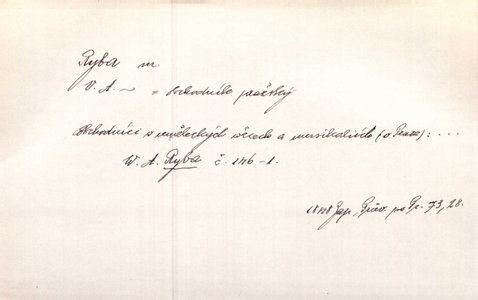 Ryba m.
V. A. ~ = obchodník pražský
Obchodníci s uměleckých věcech a musikaliích (v Praze): ...
W. A. Ryba č. 146-1.
1828 Jap, Präv. po Pr. 73, 28.